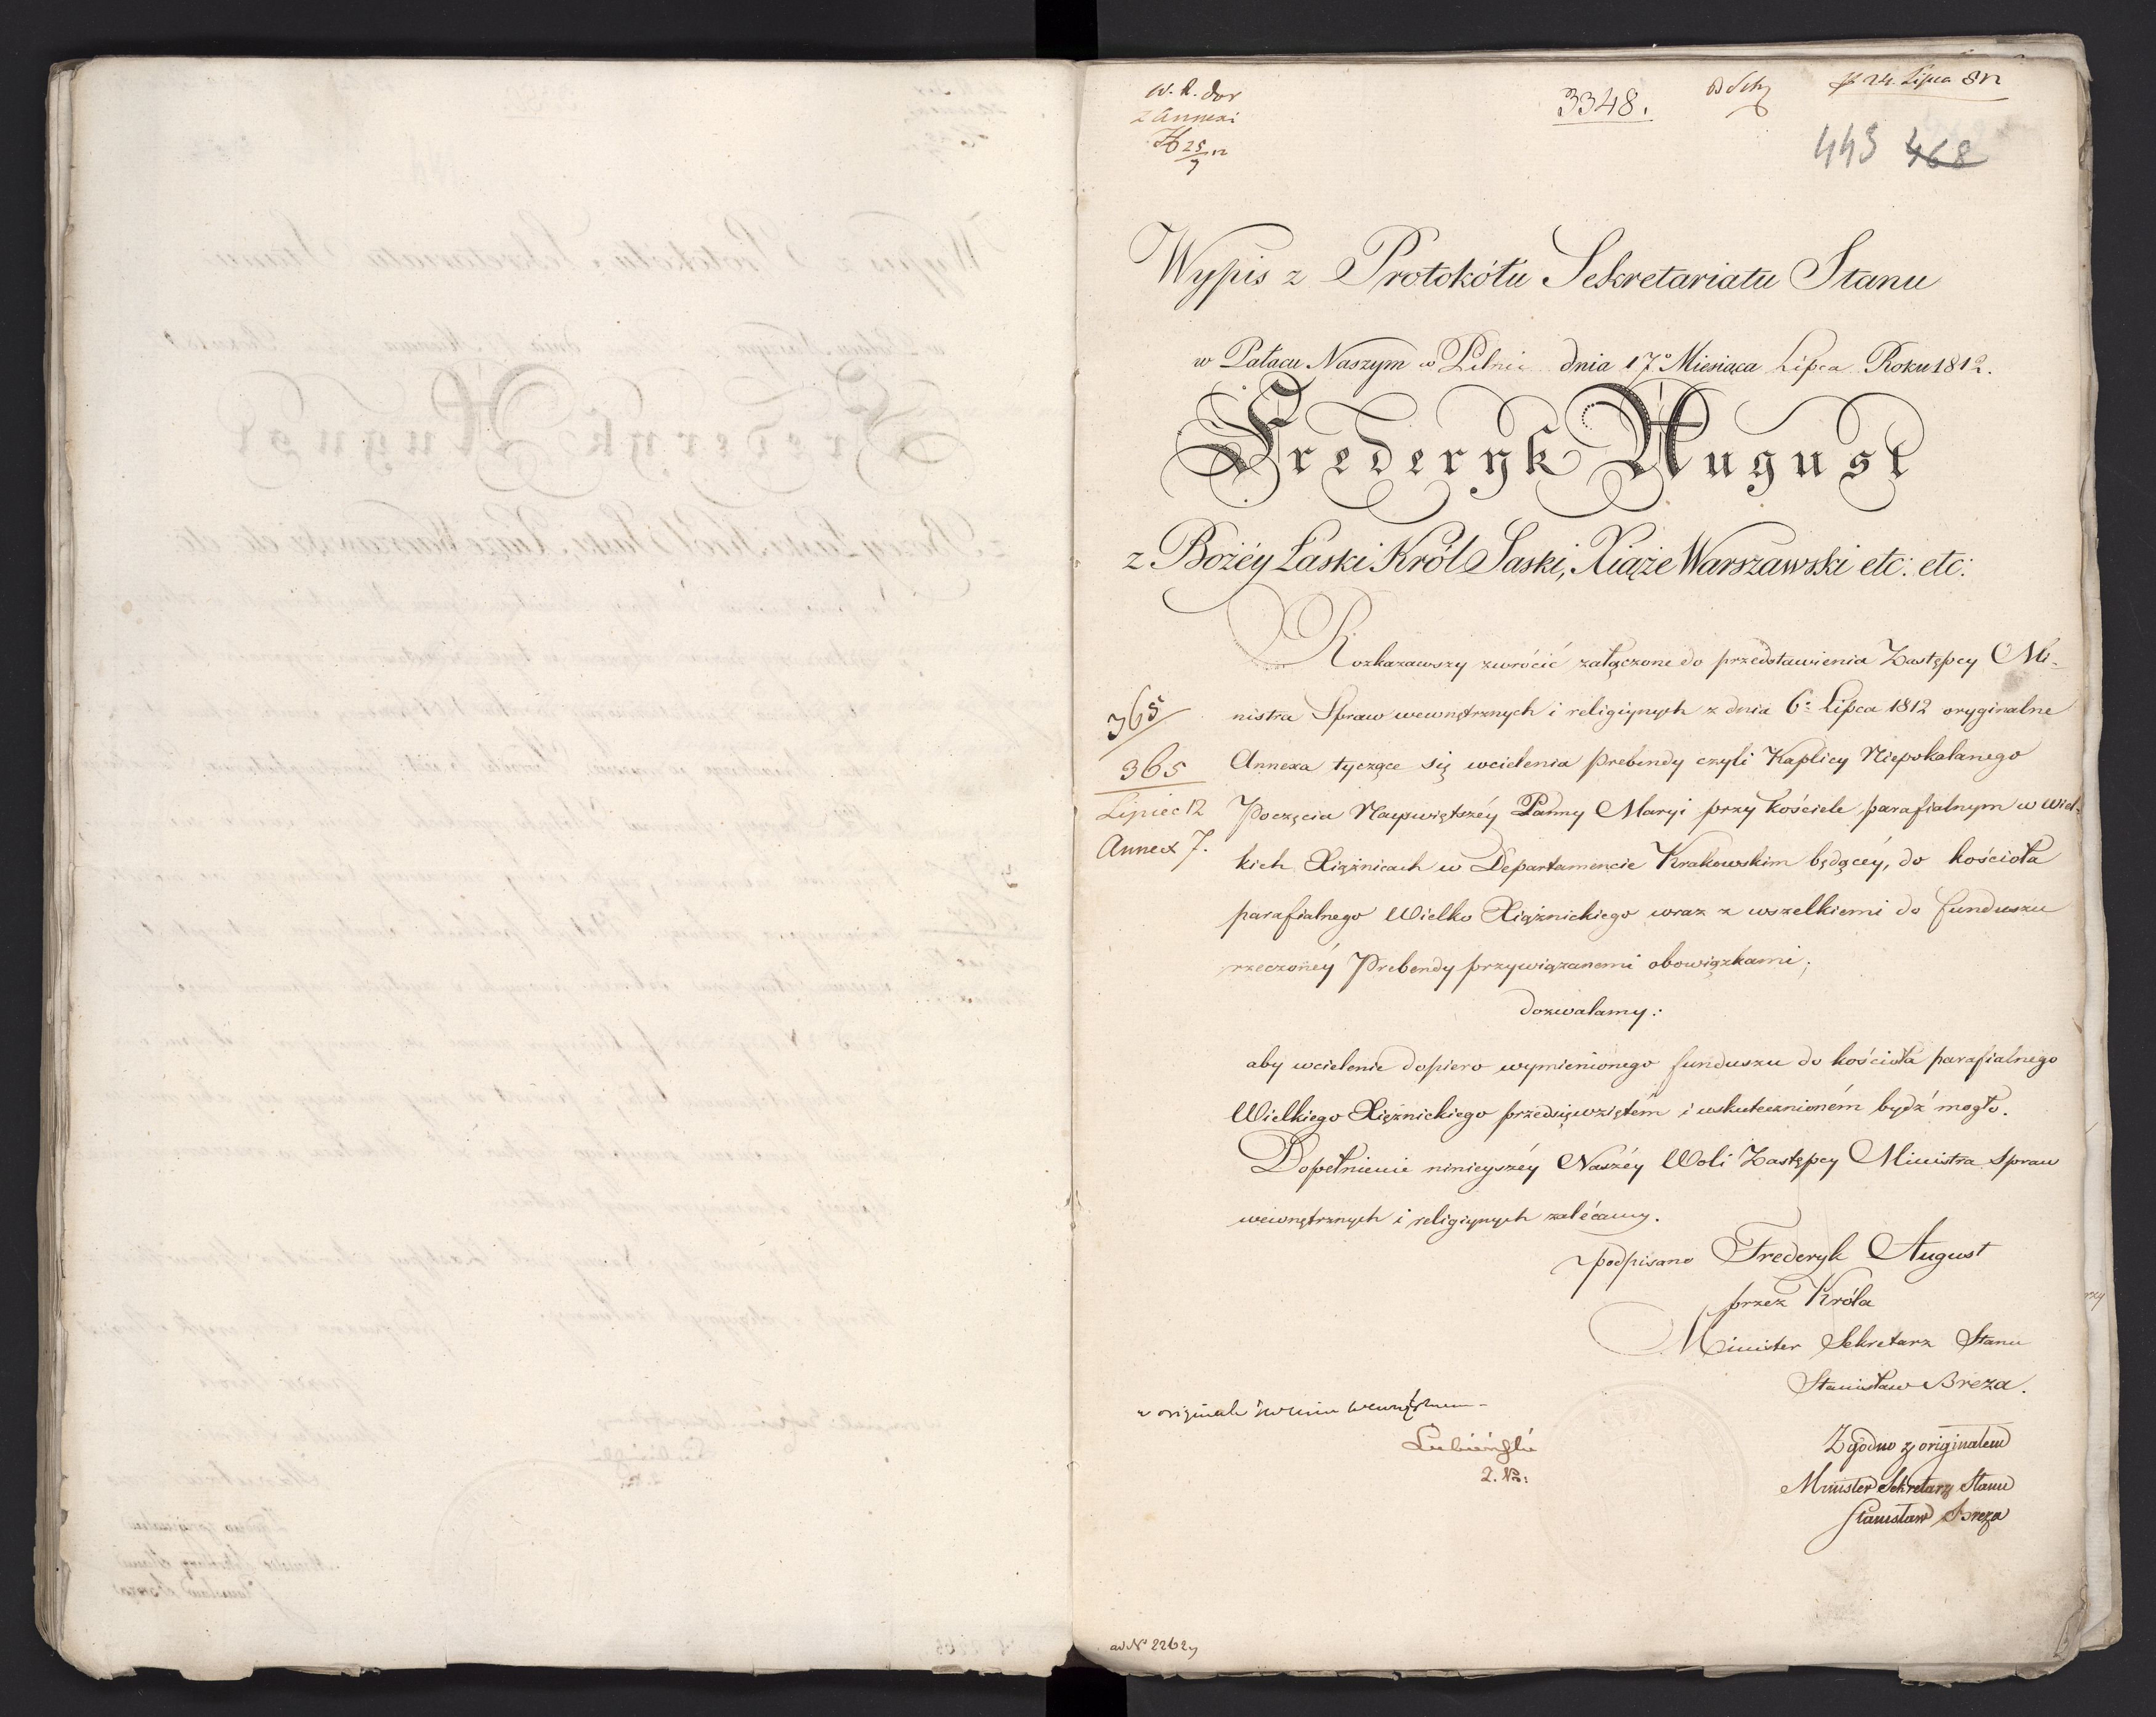 3348.
24. Lipca 812
443 468
z Annexi
25
7
Wypis z Protokółu Sekretariatu Stanu
w Pałacu Naszym w Pilnic dnia 17º Miesiąca Lipca Roku 1812.
Frederyk August
z Bożéy Łaski Król Saski, Xiąże Warszawski etc: etc:
Rozkazawszy zwrócić załączone do przedstawienia Zastępcy Mi-
nistra Spraw wewnętrznych i religiynych z dnia 6º Lipca 1812 oryginalne
365
Annexa tyczące się wcielenia Prebendy czyli Kaplicy Niepokalanego
365
Poczęcia Nayświętszéy Panny Maryi przy kościele parafialnym w Wiel-
Lipiec 12
kich Xiążnicach w Departamencie Krakowskim będącéy, do kościoła
Annex 7.
parafialnego Wielko Xiążnickiego wraz z wszelkiemi do funduszu
rzeczonéy Prebendy przywiązanemi obowiązkami;
dozwalamy:
aby wcielenie dopiero wymienionego funduszu do kościoła parafialnego
Wielkiego Xiężnickiego przedsięwziętém i uskutecznioném bydź mogło.
Dopełnienie ninieyszéy Naszéy Woli Zastępcy Ministra Spraw
wewnętrznych i religiynych zalécamy.
podpisano Frederyk August
przez Króla
Minister Sekretarz Stanu
Stanisław Breza.
Zgodno z originałem
Minister Sekretarz Stanu
Stanisław Breza
ad Nº 2262